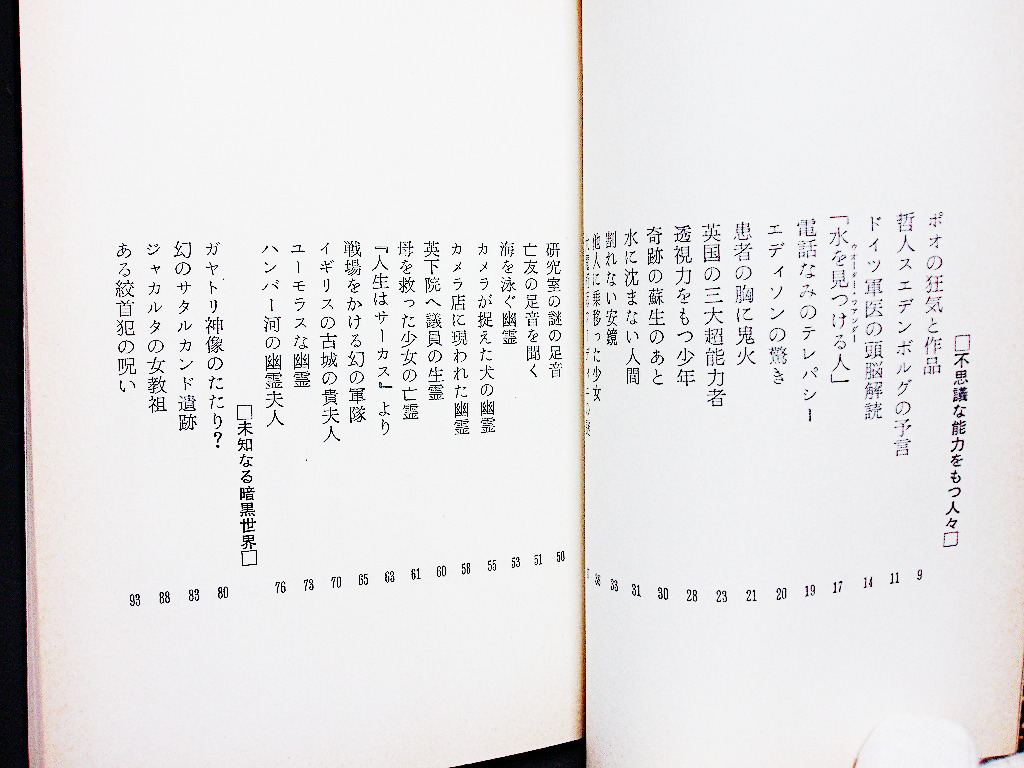 □不思議な能力をもつ人々□
ポオの狂気と作品 9
哲人スエデンボルグの予言 11
ドイツ軍医の頭脳解読 14
「水を見つける人」 17
ウオーター・フアンダー
電話なみのテレパシー 19
エディソンの驚き 20
患者の胸に鬼火 21
英国の三大超能力者 23
透視力をもつ少年 28
奇跡の蘇生のあと 30
水に沈まない人間 31
割れない安鏡 33
他人に乗移った少女 36
研究室の謎の足音 50
亡友の足音を聞く 51
海を泳ぐ幽霊 53
カメラが捉えた犬の幽霊 55
カメラ店に現われた幽霊 58
英下院へ議員の生霊 60
母を救った少女の亡霊 61
『人生はサーカス』より 63
戦場をかける幻の軍隊 65
イギリスの古城の貴夫人 70
ユーモラスな幽霊 73
ハンバー河の幽霊夫人 76
□未知なる暗黒世界□
ガヤトリ神像のたたり？ 80
幻のサタルカンド遺跡 83
ジャカルタの女教祖 88
ある絞首犯の呪い 93